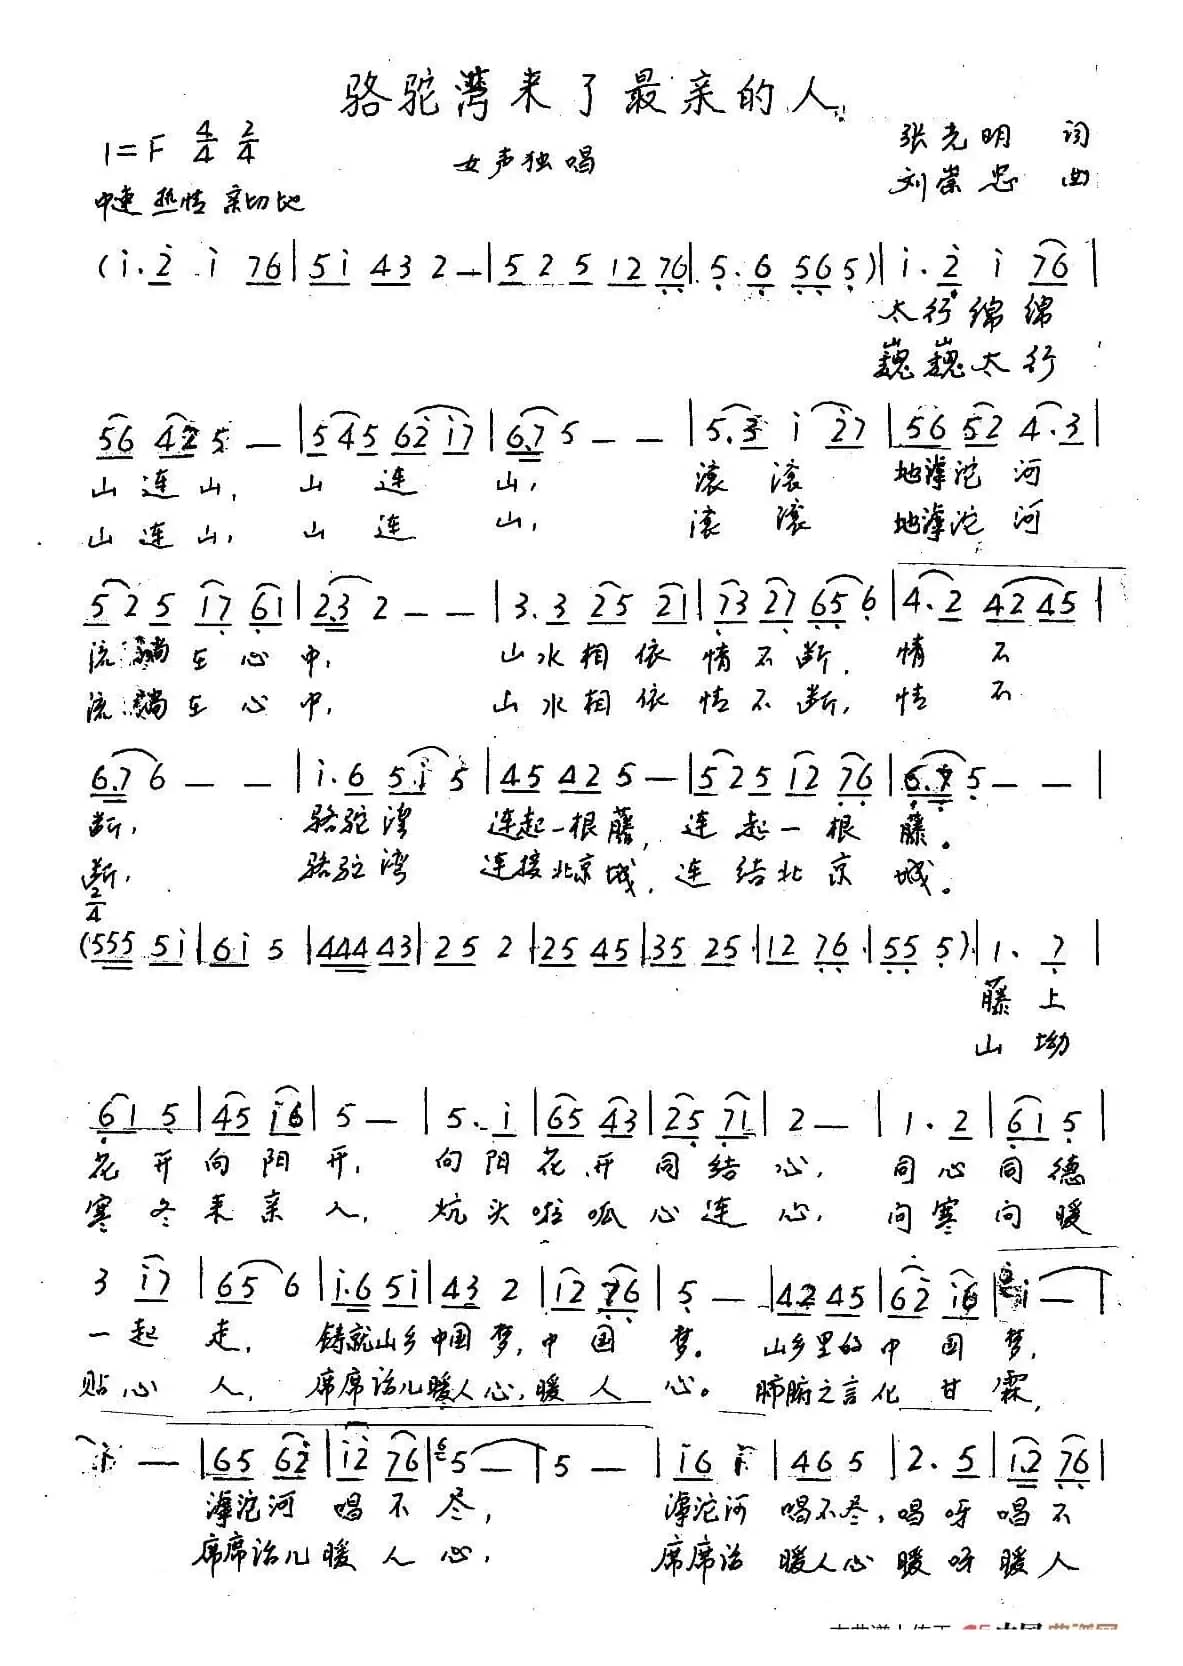 骆驼湾来了最亲的人
1=F 4/4 2/4
女声独唱
张光明 词
刘崇忠 曲
中速 热情 亲切地
(i. 2 i 76 | 5i 43 2 — | 52 5 12 76 | 5. 6 56 5) | i. 2 i 76 |
太行绵绵
巍巍太行
56 42 5 — | 545 62 i7 | 6.7 5 — — | 5.3 i 27 | 56 52 4.3 |
山连山, 山连山, 滚滚地滹沱河
山连山, 山连山, 滚滚地滹沱河
52 5 i7 61 | 2.3 2 — — | 3.3 25 21 | 73 27 65 6 | 4.2 42 45 |
流淌在心中, 山水相依情不断, 情不
流淌在心中, 山水相依情不断, 情不
6.7 6 — — | i.6 5i 5 | 45 42 5 — | 525 12 76 | 6.7 5 — — |
断, 骆驼湾 连起一根藤, 连起一根藤。
断, 骆驼湾 连接北京城, 连结北京城。
2/4
(555 5i | 6i 5 | 444 43 | 25 2 | 25 45 | 35 25 | 12 76 | 55 5) | 1. 7 |
藤上
山坳
61 5 | 45 i6 | 5 — | 5. i | 65 43 | 25 71 | 2 — | 1. 2 | 61 5 |
花开向阳开, 向阳花开同结心, 同心同德
寒冬来亲人, 炕头啦呱心连心, 问寒问暖
3 i7 | 65 6 | i.6 5i | 43 2 | 12 76 | 5 — | 42 45 | 62 i6 | i — |
一起走, 铸就山乡中国梦, 中国梦。山乡里的中国梦,
贴心人, 席席话儿暖人心, 暖人心。肺腑之言化甘霖,
i — | 65 62 | i2 76 | 6 5 — | 5 — | i6 i | 46 5 | 2. 5 | 12 76 |
滹沱河唱不尽, 滹沱河唱不尽, 唱呀唱不
席席话儿暖人心, 席席话暖人心暖呀暖人